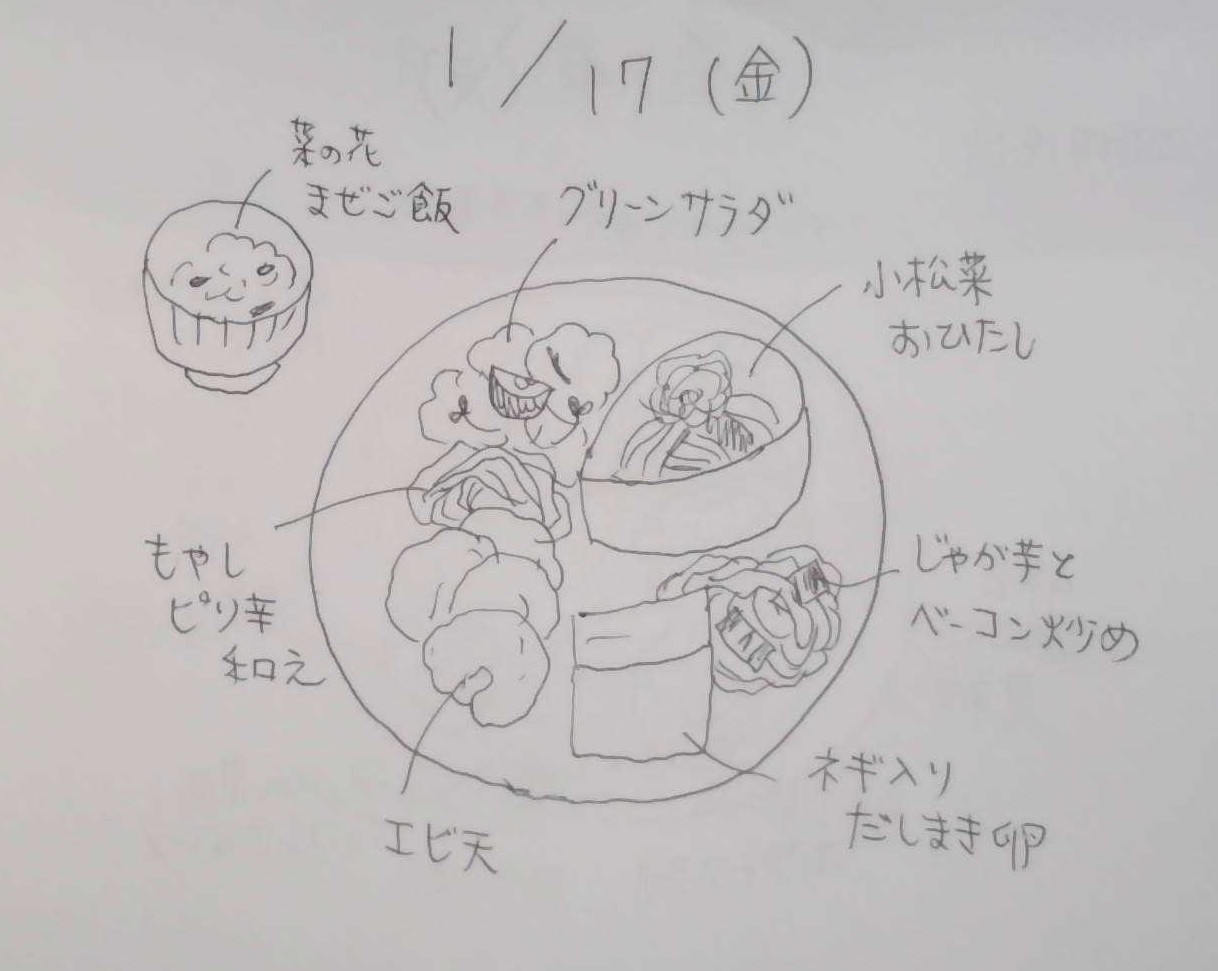 1/17(金)
菜の花
まぜご飯
グリーンサラダ
小松菜
おひたし
もやし
ピリ辛
和え
じゃが芋と
ベーコン炒め
エビ天
ネギ入り
だしまき卵